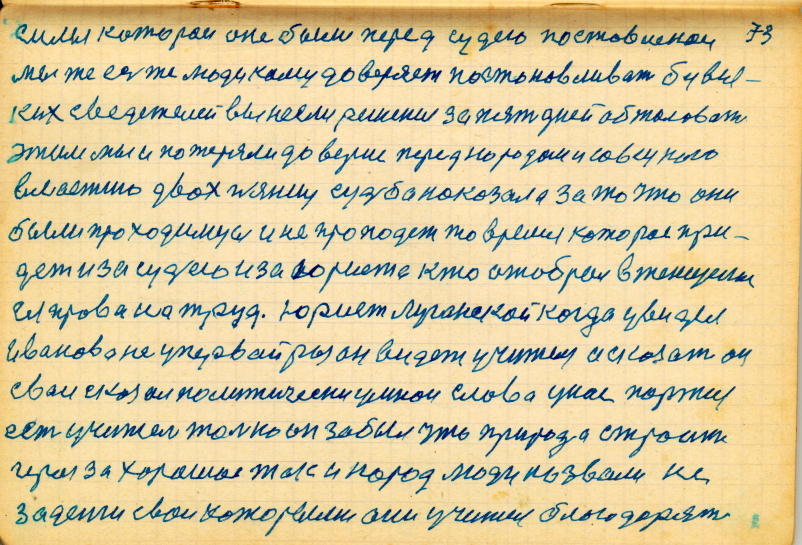 силы которои оне были перед судею постовленои 73
мы же суже люди кому доверяет постоновливат бувы-
ких сведетелей вынесли решения за пят дней обжаловат
этим мы и потеряли доверие перед народом и совецкого
властию двох пяниц судба покозала за то что они
были проходимцы и не проподет то время которое при-
дет и за судею и за юриста кто отобрал в женщины
ея права на труд. Юрист Луганской когда увидел
Иванова не у первай раз он видет учител а сказат он
сваи сказал политически умнои слова у нас партия
ест учител толко он забыл что природа строит
героя за хорошое так и народ люди назвали не
за денги сваи они учител благодарят